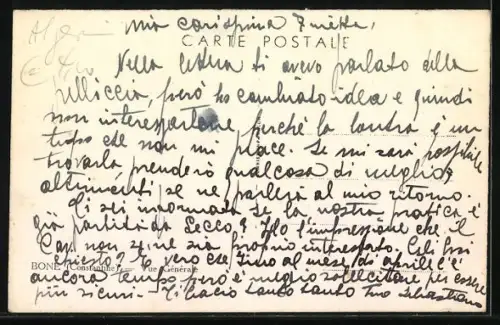 Algeri
Mia carissima Zinetta,
CARTE POSTALE
Nella lettera ti avevo parlato della
pelliccia, però ho cambiato idea e quindi
non interessartene perchè la lontra è un
tipo che non mi piace. Se mi sarà possibile
trovarla, prenderò qualcosa di meglio,
altrimenti se ne parlerà al mio ritorno.
Ti sei informata se la nostra pratica è
già partita da Lecco? Ho l'impressione che il
Cap. non se ne sia proprio interessato. Gli hai
chiesto? E' vero che fino al mese di aprile c'è
BONE (Constantine) Vue Générale
ancora tempo però è meglio sollecitare per essere
più sicuri - Ti bacio tanto tanto Tuo Sebastiano